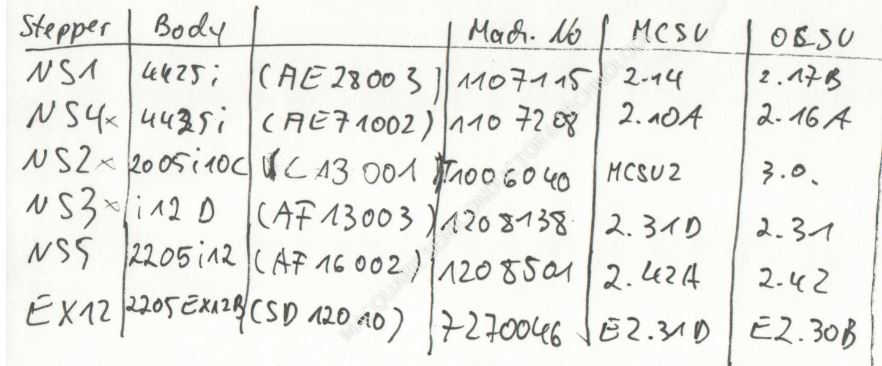 Stepper Body Mach. No MCSV OBSV
NS1 4425i (AE28003) 1107115 2.14 2.17B
NS4x 4425i (AE71002) 1107208 2.10A 2.16A
NS2x 2005i10C (LC13001) 1006040 MCSV2 3.0.
NS3x i12D (AF13003) 1208138 2.31D 2.31
NS5 2205i12 (AF16002) 1208501 2.42A 2.42
EX12 2205EX12B (SD12010) 7270046 E2.31D E2.30B